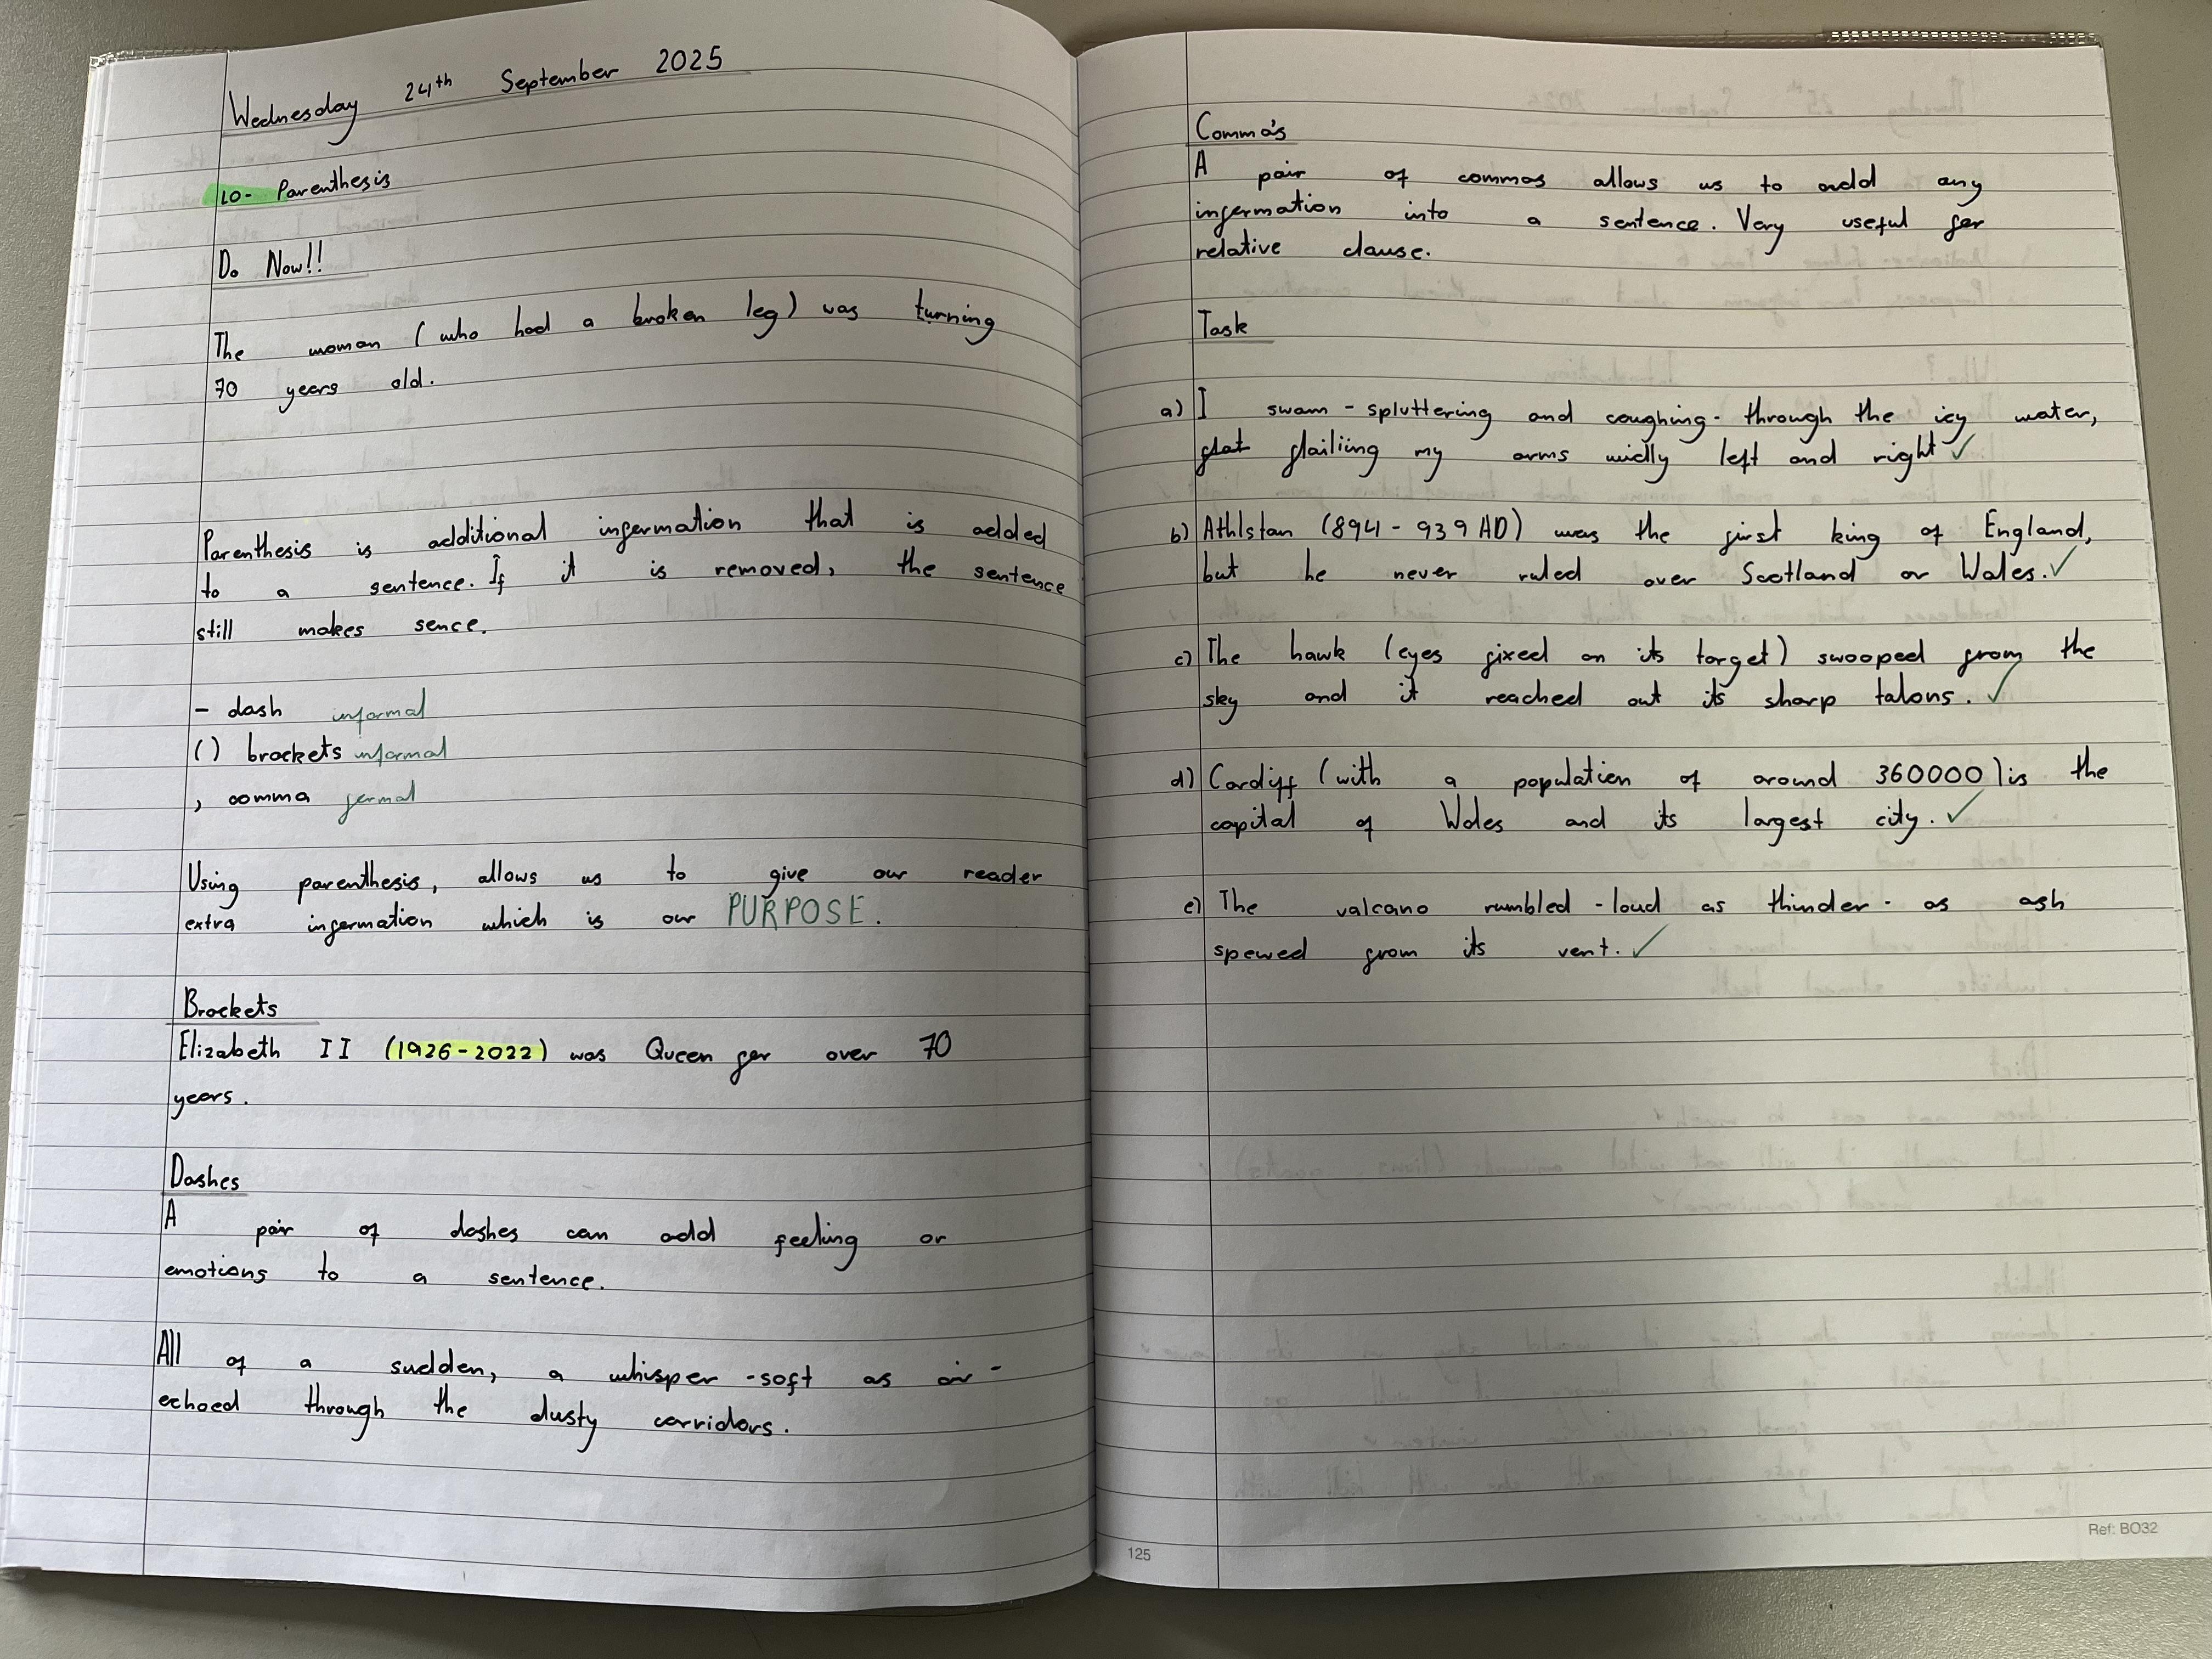 Wednesday 24th September 2025
LO- Parenthesis
Do Now!!
The woman (who had a broken leg) was turning
70 years old.
Parenthesis is additional infermation that is added
to a sentence. If it is removed, the sentence
still makes sence.
- dash informal
() brackets informal
, comma formal
Using parenthesis, allows us to give our reader
extra infermation which is our PURPOSE.
Brackets
Elizabeth II (1926-2022) was Queen for over 70
years.
Dashes
A pair of dashes can add feeling or
emotions to a sentence.
All of a sudden, a whisper -soft as air-
echoed through the dusty corridors.
Comma's
A pair of commas allows us to add any
infermation into a sentence. Very useful for
relative clause.
Task
a) I swam - spluttering and coughing - through the icy water,
flailiing my arms widly left and right ✓
b) Athlstan (894 - 939 AD) was the first king of England,
but he never ruled over Scotland or Wales. ✓
c) The hawk (eyes fixed on its target) swooped from the
sky and it reached out its sharp talons. ✓
d) Cardiff (with a population of around 360000) is the
capital of Wales and its largest city. ✓
e) The valcano rumbled - loud as thinder - as ash
spewed from its vent. ✓
125
Ref: BO32